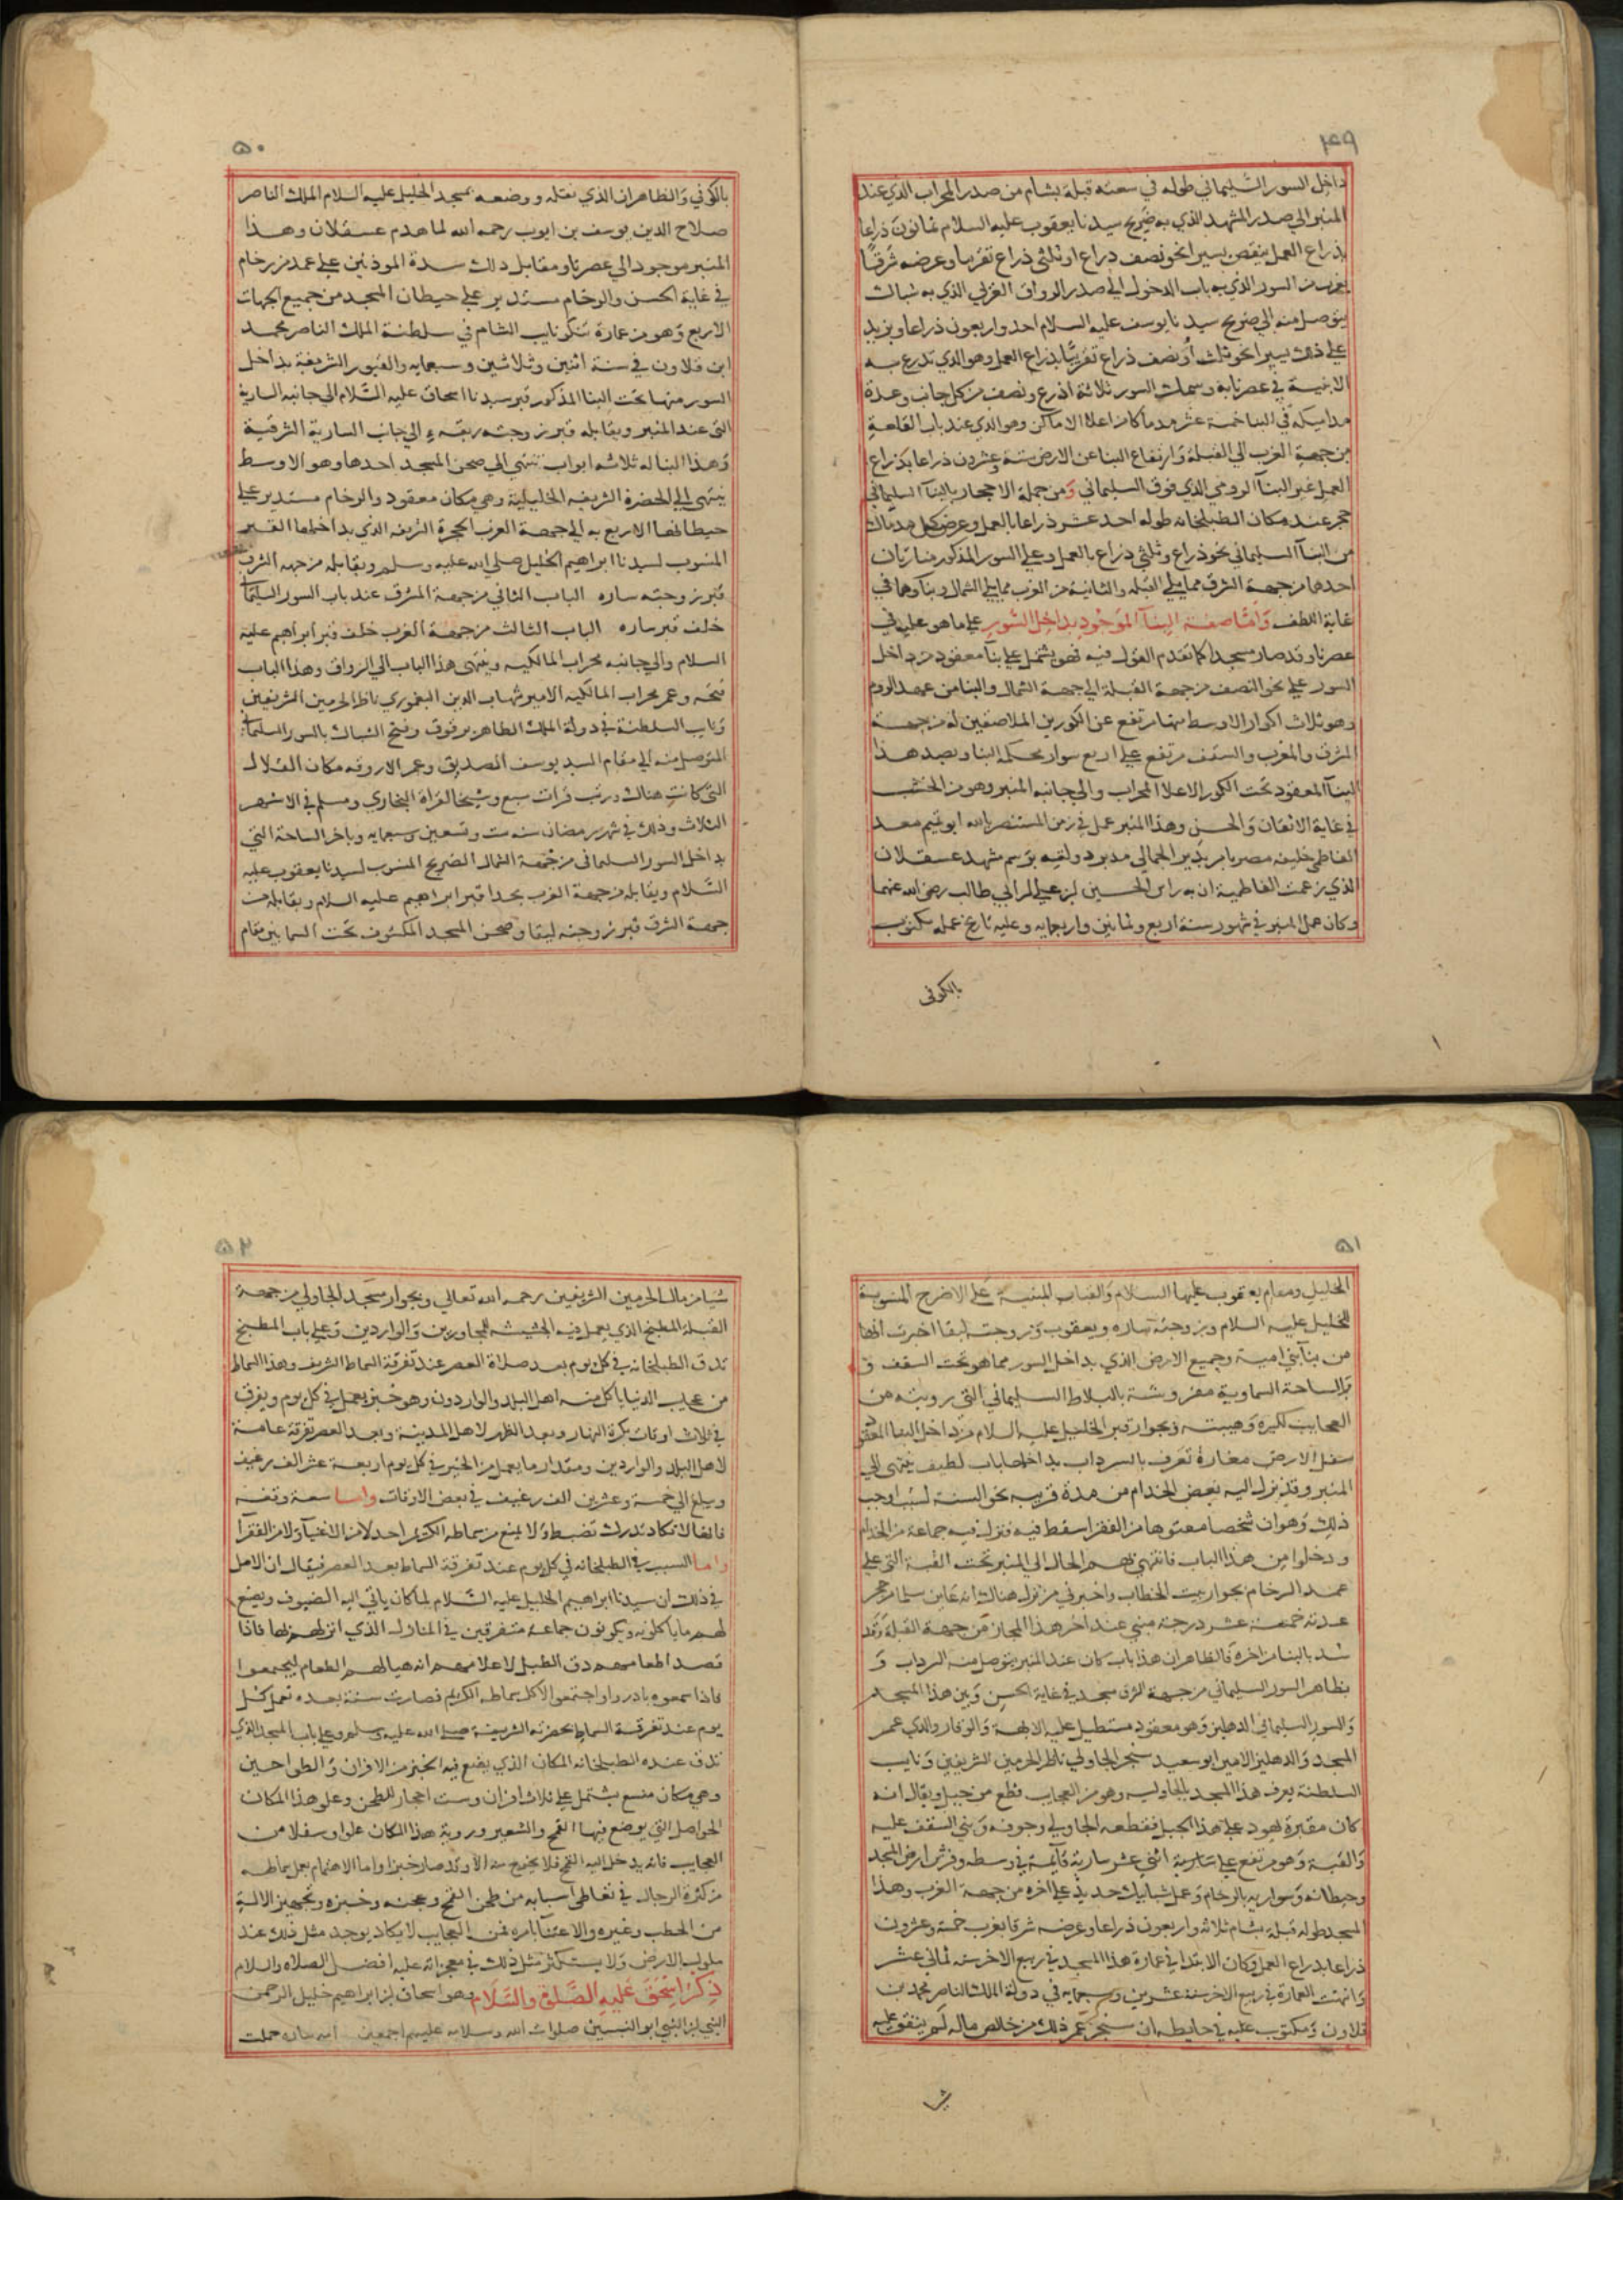 ۴۹
داخل السور السليماني طوله في سعته قبلة بشام من صدر المحراب الذي عند
المنبر الي صدر المشهد الذي به ضريح سيدنا يعقوب عليه السلام ثمانون ذراعا
بذراع العمل ينقص يسيرا نحو نصف ذراع او ثلثي ذراع تقريبا وعرضه شرقا
بغرب من السور الذي به باب الدخول الي صدر الرواق الغربي الذي به شباك
يتوصل منه الي ضريح سيدنا يوسف عليه السلام احد واربعون ذراعا ويزيد
علي ذلك يسيرا نحو ثلث أو نصف ذراع تقريبًا بذراع العمل وهو الذي تدرع به
الابنية في عصرنا هذا وسمك السور ثلاثة اذرع ونصف من كل جانب وعدة
مداميكه في البنا خمسة عشر مدماكا من اعلا الاماكن وهو الذي عند باب القلعة
من جهة الغرب الي القبلة وارتفاع البنا عن الارض ستة وعشرون ذراعا بذراع
العمل غير البنآ الرومي الذي فوق السليماني وَمن جملة الاحجار بالبنآ السليماني
حجر عند مكان الطبلخانه طوله احد عشر ذراعا بالعمل وعرض كل مدماك
من البنآ السليماني نحو ذراع وثلثي ذراع بالعمل وعلي السور المذكور منارتان
احدها من جهة الشرق مما يلي القبلة والثانية من الغرب مما يلي الشمال وبنآوها في
غاية اللطف وَأمّا صفة البنآ الموجود بداخل السّور علي ما هو عليه في
عصرنا وقد صار مسجدا كما تقدم القول فيه فهو يشتمل علي بنآ معقود من داخل
السور علي نحو النصف من جهة القبلة الي جهة الشمال والبنا من عهد الروم
وهو ثلاث اكوار الاوسط منها مرتفع عن الكورين الملاصقين له من جهة
المشرق والمغرب والسقف مرتفع علي اربع سوار محكمة البنا وبصدر هذا
البنآ المعقود تحت الكور الاعلا المحراب والي جانبه المنبر وهو من الخشب
في غاية الاتقان والحسن وهذا المنبر عمل في زمن المستنصر بالله ابو تميم معد
الفاطمي خليفة مصر بامر بدير الجمالي مدبر دولته برسم مشهد عسقلان
الذي زعمت الفاطمية ان به راس الحسين بن علي ابن ابي طالب رضي الله عنهما
وكان عمل المنبر في شهور سنة اربع وثمانين واربعمايه وعليه تاريخ عمله مكتوب
بالكوفى
۵۰
بالكوفي وَالظاهر ان الذي نقله ووضعه بمسجد الخليل عليه السلام الملك الناصر
صلاح الدين يوسف بن ايوب رحمه الله لما هدم عسقلان وهذا
المنبر موجود الي عصرنا ومقابل ذلك سدة الموذنين علي عمد من رخام
في غاية الحسن والرخام مستدير علي حيطان المسجد من جميع الجهات
الاربع وَهو من عمارة تنكز نايب الشام في سلطنة الملك الناصر محمد
ابن قلاون في سنة اثنين وثلاثين وسبعمايه والقبور الشريفة بداخل
السور منها تحت البنا المذكور قبر سيدنا اسحاق عليه السّلام الي جانب السارية
التي عند المنبر ويقابله قبر زوجته ربقه الي جانب السارية الشرقية
وَهذا البنا له ثلاثة ابواب تنتهي الي صحن المسجد احدها وهو الاوسط
ينتهي الي الحضرة الشريفه الخليلية وهي مكان معقود والرخام مستدير علي
حيطانها الاربع به الي جهة الغرب الحجرة الشريفه الذي بداخلها القبر
المنسوب لسيدنا ابراهيم الخليل صلي الله عليه وسلم ويقابله من جهة الشرق
قبر زوجته ساره الباب الثاني من جهة المشرق عند باب السور السليماني
خلف قبر ساره الباب الثالث من جهة الغرب خلف قبر ابراهيم عليه
السلام والي جانبه محراب المالكيه وينتهي هذا الباب الي الرواق وهذا الباب
فتحه وعمر محراب المالكيه الامير شهاب الدين اليغموري ناظر الحرمين الشريفين
وَنايب السلطنة في دولة الملك الظاهر برقوق وفتح الشباك بالسور السليماني
المتوصل منه الي مقام السيد يوسف الصديق وعمر الاروقه مكان القلال
التي كانت هناك ورتب قرات سبع وشيخا لقراة البخاري ومسلم في الاشهر
الثلاث وذلك في شهر رمضان سنة ست وتسعين وسبعمايه وباخر الساحة التي
بداخل السور السليماني من جهة الشمال الضريح المنسوب لسيدنا يعقوب عليه
السّلام ويقابله من جهة الغرب بحدا قبر ابراهيم عليه السلام ويقابله من
جهة الشرق قبر زوجته ليقا وصحن المسجد المكشوف تحت السما بين مقام
۵۱
الخليل ومقام يعقوب عليهما السلام وَالقباب المبنية عَلي الاضرح المنسوبة
للخليل عليه السلام وزوجته ساره ويعقوب وَزوجته ليقا اخبرت انها
من بنآ بني امية وجميع الارض الذي بداخل السور مما هو تحت السقف و
وَالساحة السماوية مفروشة بالبلاط السليماني التي رويته من
العجايب لكبره وَهيبته وبجوار قبر الخليل عليه السلام من داخل البنا المعقود
سفل الارض مغارة تعرف بالسرداب بداخلها باب لطيف ينتهي الي
المنبر وقد نزل اليه بعض الخدام من مدة قريبه نحو السنة لسبب اوجب
ذلك وَهو ان شخصا معتوها من الفقرا سقط فيه فنزل فيه جماعة من الخدام
ودخلوا من هذا الباب فانتهي بهم الحال الي المنبر تحت القبة التي علي
عمد الرخام بجوار بيت الخطاب واخبرني من نزل هناك انه عاين سلما من حجر
عدته خمسة عشر درجة مبني عند اخر هذا المجاز من جهة القبلة وَقد
سُد بالبنا من اخره فالظاهر ان هذا باب كان عند المنبر يتوصل منه السرداب وَ
بظاهر السور السليماني من جهة الشرق مسجد في غاية الحسن وَبين هذا المسجد
وَالسور السليماني الدهليز وَهو معقود مستطيل عليه الابهة وَالوقار والذي عمر
المسجد وَالدهليز الامير ابو سعيد سنجر الجاولي ناظر الحرمين الشريفين وَنايب
السلطنة يعرف هذا المسجد بالجاوليه وهو من العجايب قطع من جبل ويقال انه
كان مقبرة ليهود علي هذا الجبل فقطعه الجاولي وجوفه وَبني السقف عليه
وَالقبة وَهو مرتفع علي اثني عشر سارية قآيمة في وسطه وفرش ارض المسجد
وحيطانه وَسواريه بالرخام وَعمل شبابيك حديد علي اخره من جهة الغرب وهذا
المسجد طوله قبلة بشام ثلاثة واربعون ذراعا وعرضه شرقا بغرب خمسة وعشرون
ذراعا بذراع العمل وَكان الابتدا في عمارة هذا المسجد في ربيع الاخر سنة ثماني عشر
وَانتهت العمارة في ربيع الاخر سنة عشرين وسبعمايه في دولة الملك الناصر محمد بن
قلاون وَمكتوب عليه في حايطه ان سنجر عمر ذلك من خالص ماله لَم ينفق عليه
شي
۵۲
شيا من مال الحرمين الشريفين رحمه الله تعالي وبجوار مسجد الجاولي من جهة
القبلة المطبخ الذي يعمل فيه الجشيشة للمجاورين وَالواردين وَعلي باب المطبخ
تدق الطبلخانه في كل يوم بعد صلاة العصر عند تفرقة السماط الشريف وهذا السماط
من عجايب الدنيا ياكل منه اهل البلد والواردون وهو خبز يعمل في كل يوم ويفرق
في ثلاث اوقات بكرة النهار وبعد الظهر لاهل المدينة وبعد العصر تفرقة عامة
لاهل البلد والواردين ومقدار ما يعمل من الخبز في كل يوم اربعة عشر الف رغيف
ويبلغ الي خمسة وعشرين الف رغيف في بعض الاوقات واما سعة وقفه
فانها لا تكاد تدرك تضبط وَلا يمنع من سماطه الكريم احد لا من الاغنيآ وَلا من الفقرآ
واما السبب في الطبلخانه في كل يوم عند تفرقة السماط بعد العصر فيقال ان الاصل
في ذلك ان سيدنا ابراهيم الخليل عليه السّلام لما كان ياتي اليه الضيوف ويضع
لهم ما ياكلونه ويكونون جماعة متفرقين في المنازل الذي انزلهم بها فاذا
قصد اطعامهم دق الطبل لاعلامهم انه هيا لهم الطعام ليجتمعوا
فاذا سمعوه بادروا واجتمعوا لاكل سماطه الكريم فصارت سنة بعده تعمل كل
يوم عند تفرقة السماط بحضرته الشريفة صلي الله عليه وسلم وعلي باب المسجد الذي
تدق عنده الطبلخانه المكان الذي يصنع فيه الخبز من الافران وَالطواحين
وهي مكان متسع يشتمل علي ثلاث افران وست احجار للطحن وعلو هذا المكان
الحواصل التي يوضع فيها القمح والشعير وروية هذا المكان علوا وسفلا من
العجايب فانه يدخل اليه القمح فلا يخرج منه الا وقد صار خبزا واما الاهتمام بعمل سماطه
من كثرة الرجال في تعاطي اسبابه من طحن القمح وعجنه وخبزه وتجهيز الالة
من الحطب وغيره والاعتنآ بامره فمن العجايب لا يكاد يوجد مثل ذلك عند
ملوك الارض وَلا يستكثر مثل ذلك في معجزاته عليه افضل الصلاه والسلام
ذِكرُ اِسْحَقَ عَليهِ الصَّلوة والسَّلَام وهو اسحاق بن ابراهيم خليل الرحمن
النبي ابن النبي ابو النبيين صلوات الله وسلامه عليهم اجمعين امه ساره حملت